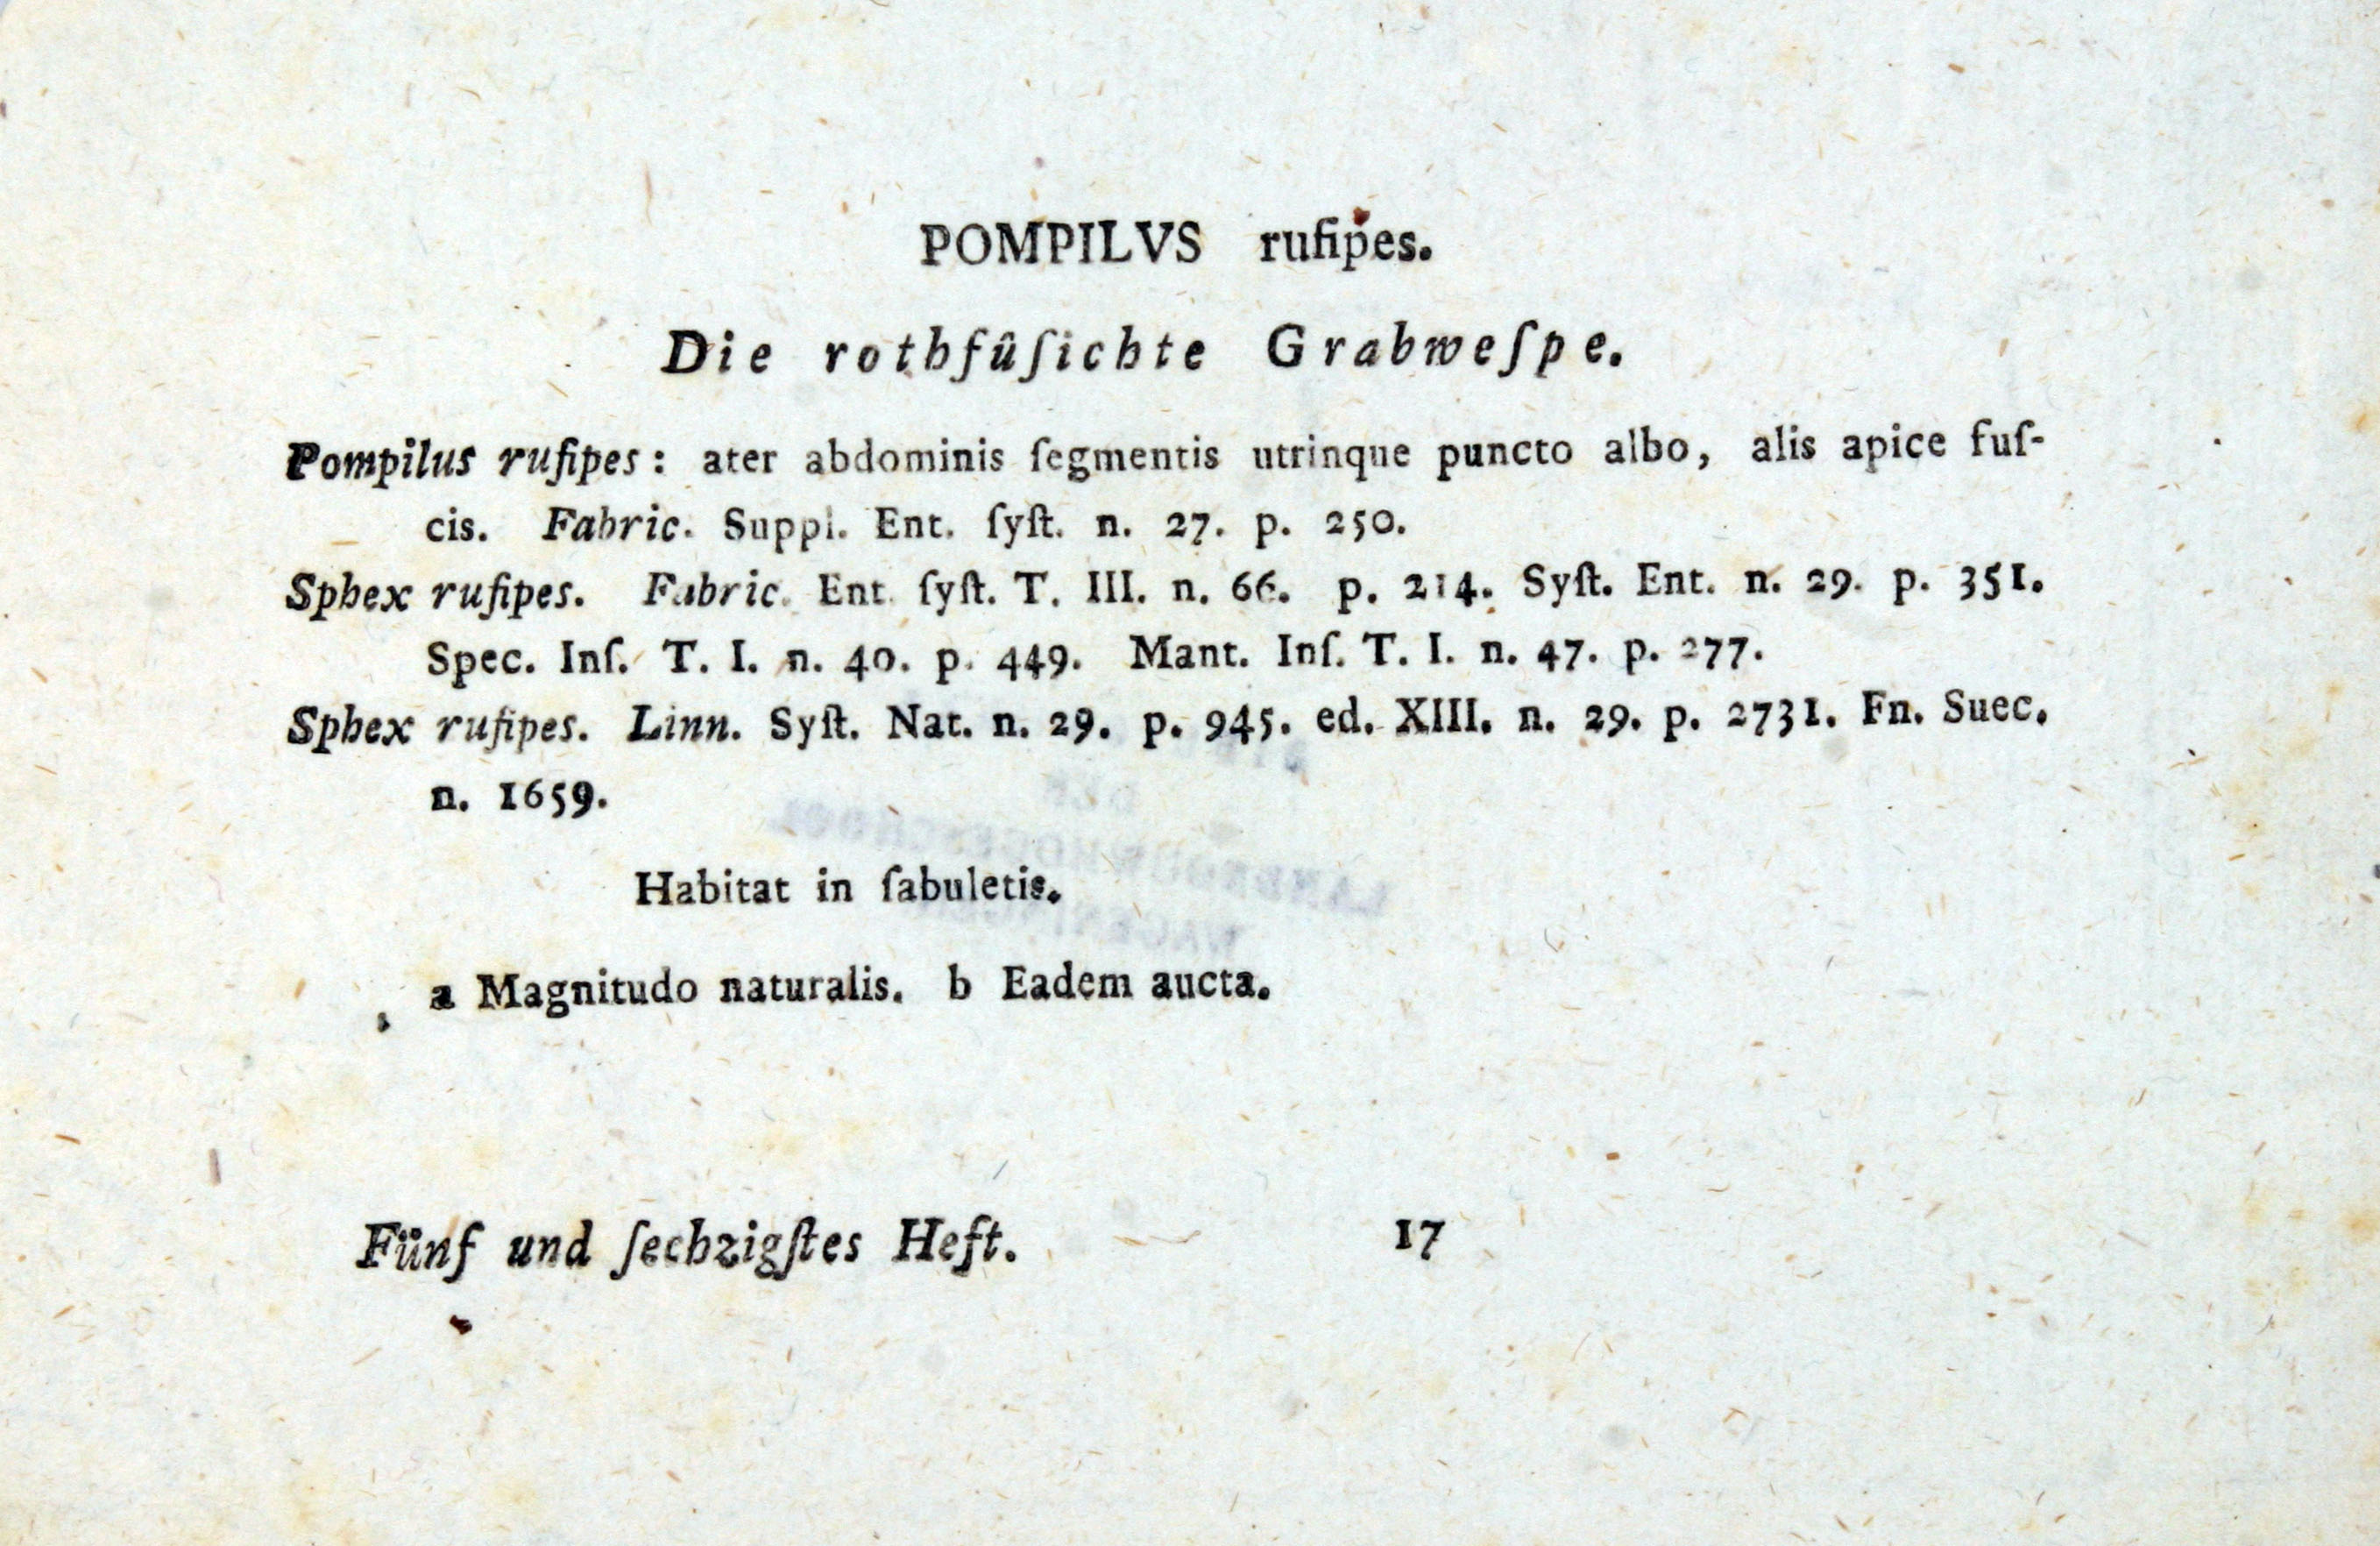 POMPILVS rufipes.
Die rothfûſichte Grabweſpe.
Pompilus rufipes: ater abdominis ſegmentis utrinque puncto albo, alis apice fuſ-
cis. Fabric. Suppl. Ent. ſyſt. n. 27. p. 250.
Sphex rufipes. Fabric. Ent. ſyſt. T. III. n. 66. p. 214. Syſt. Ent. n. 29. p. 351.
Spec. Inſ. T. I. n. 40. p. 449. Mant. Inſ. T. I. n. 47. p. 277.
Sphex rufipes. Linn. Syſt. Nat. n. 29. p. 945. ed. XIII. n. 29. p. 2731. Fn. Suec.
n. 1659.
Habitat in ſabuletis.
a Magnitudo naturalis. b Eadem aucta.
Fünf und ſechzigſtes Heft. 17